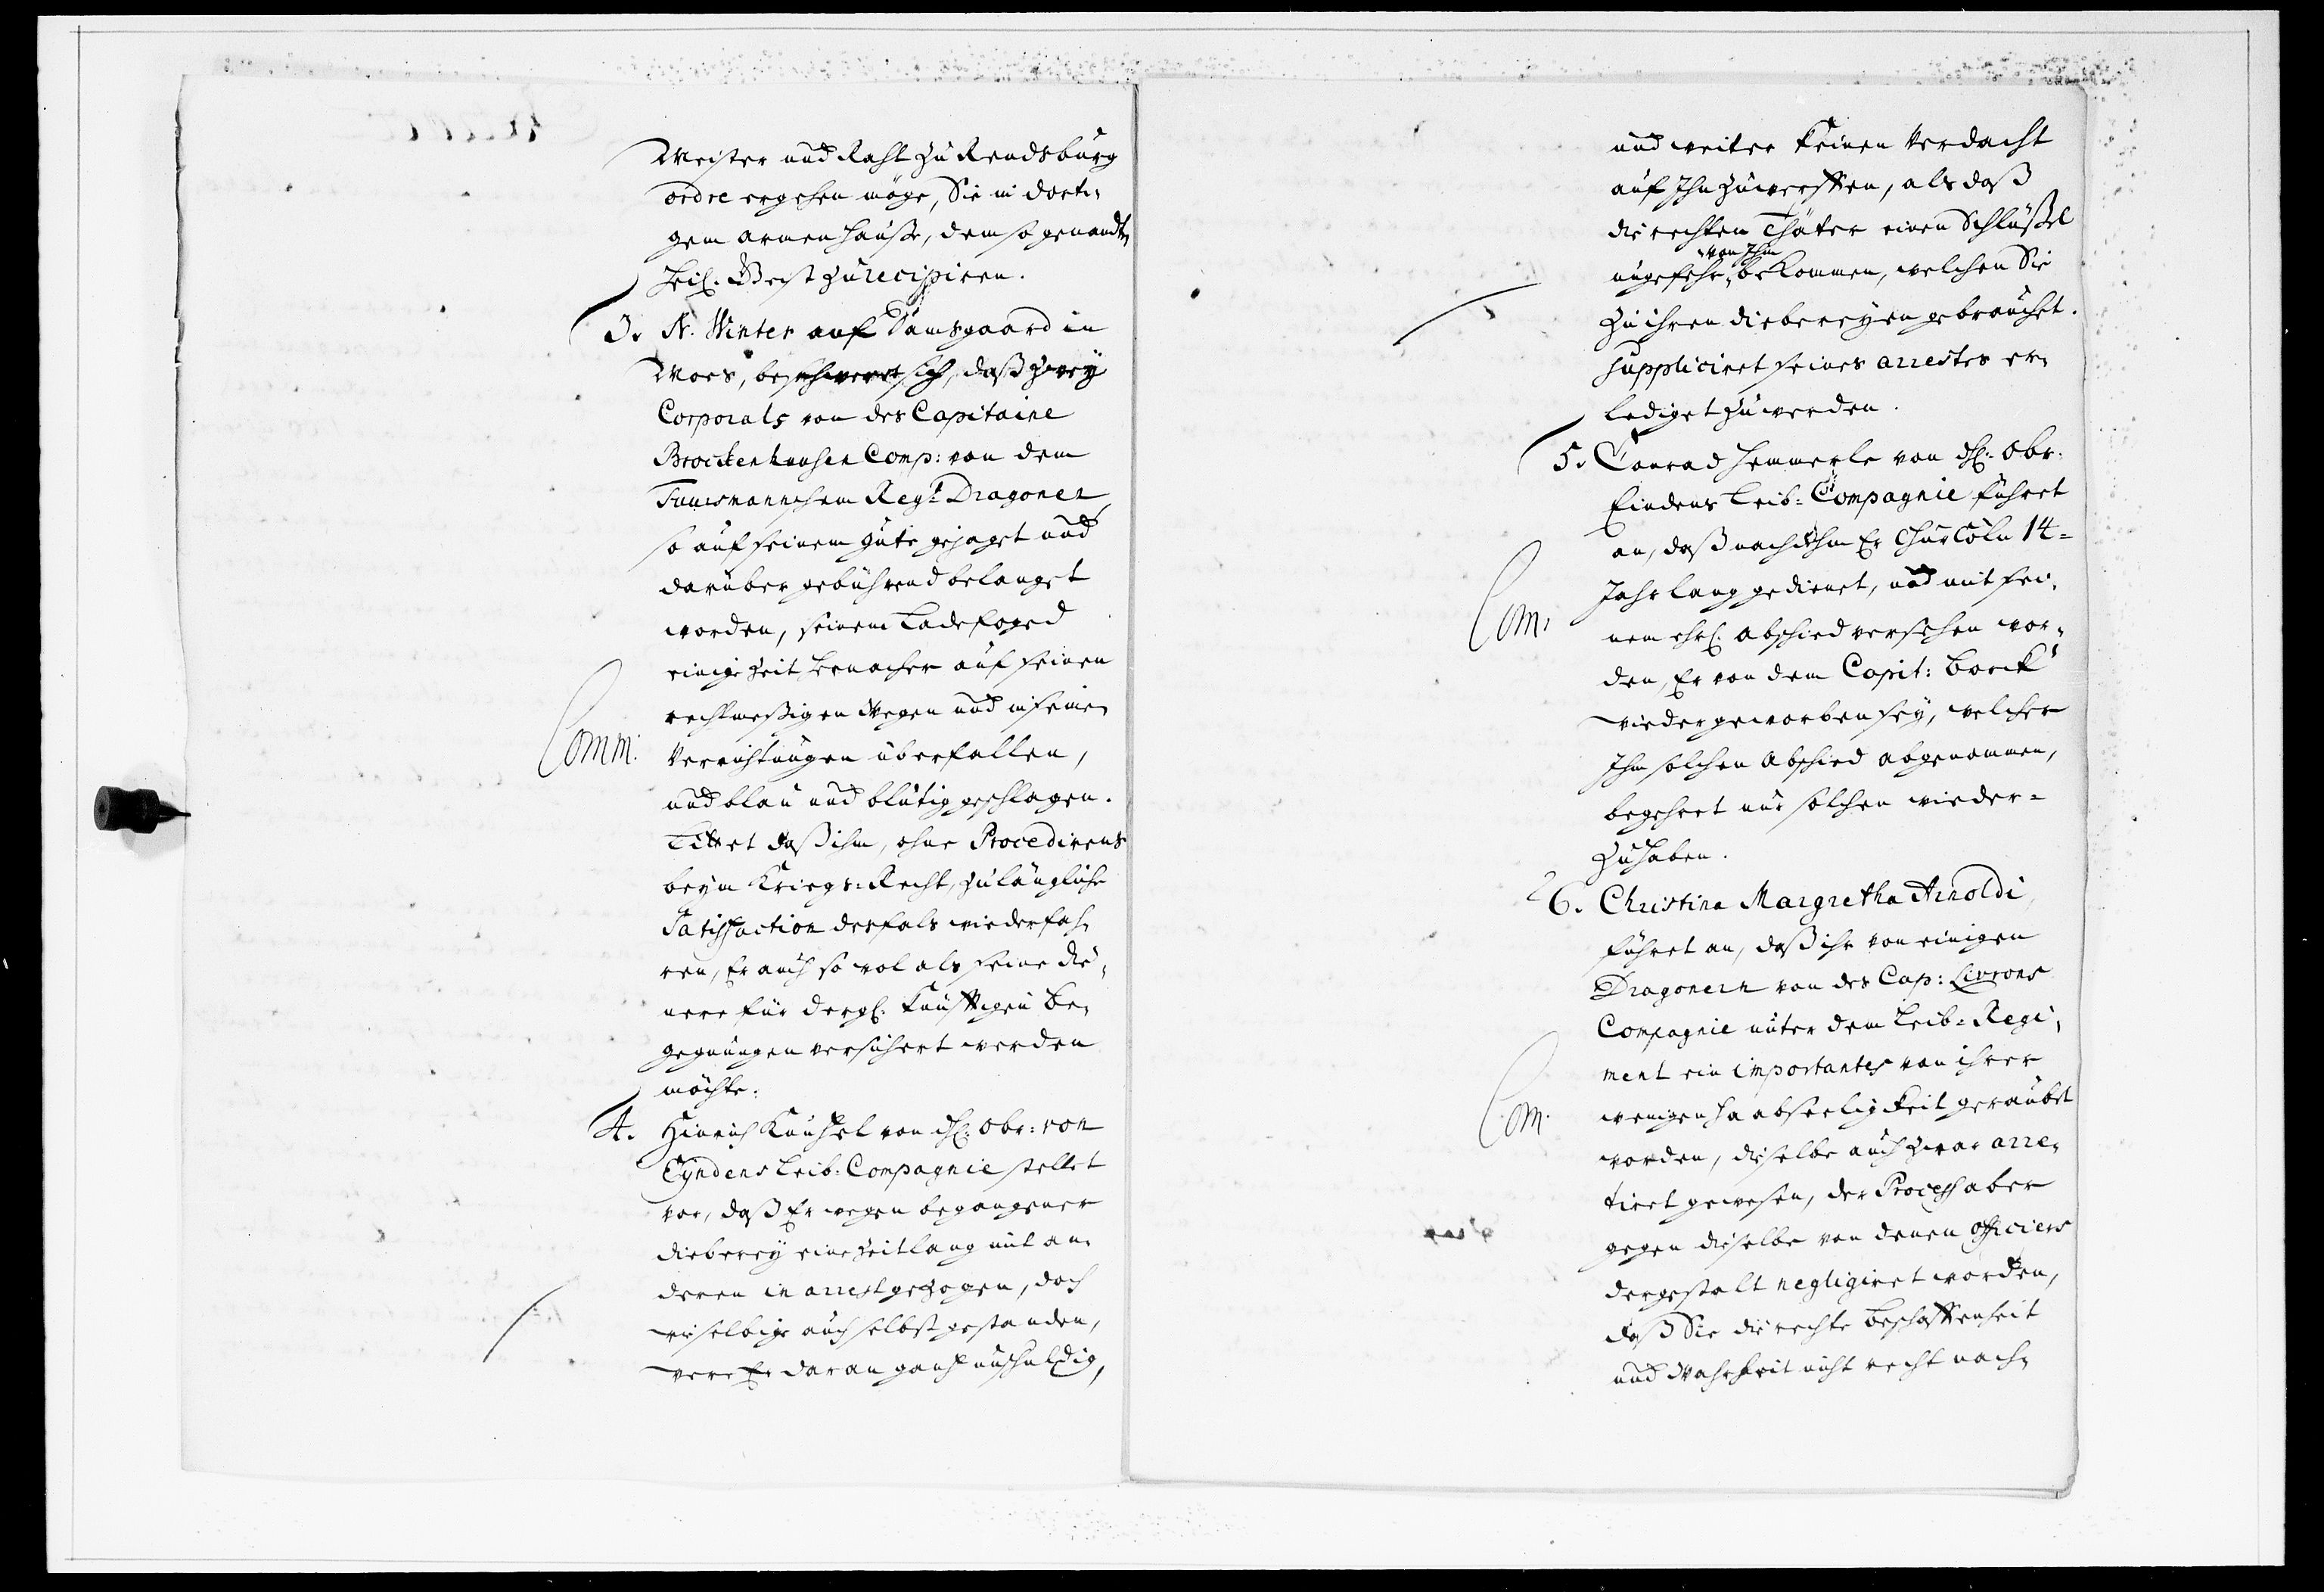 Meister und Raht zu Rendsburg
ordre ergehen möge, Sie in dorti,
gem armenhauße, dem so genandten
Heil. Geist zu recipiren.
3. N. Winter auf Damsgaard in
Moes, beschweret sich, daß zwey
Corporals von des Capitaine
Brockenhausen Comp: von dem
Regt. Dragoner
so auf seinem gute gejaget und
darüber gebührend belanget
worden, seinem Ladefoged
einige Zeit hernacher auf seinen
rechtmeßigen Wegen und in seinen
Comm: Verrichtungen überfallen,
und blau und blutig geschlagen.
Bittet daß ihm, ohne Procedirens
beym Kriegs-Recht, zulängliche
Satisfaction desfals wiederfah,
ren, Er auch so wol als seine die,
nere für dergl. künfftigen be,
gegnungen versichert werden
möchte.
4. Hinrich Knüppel von H: Obr: von
Eyndens Leib-Compagnie stellet
vor, daß Er wegen begangener
dieberey eine Zeitlang mit an,
deren in arrest gezogen, doch
wie selbige auch selbst gestanden,
were Er daran gantz unschuldig,
und weiter keinen Verdacht
auf Ihn zu werffen, als daß
die rechten Thäter einen Schlüßel
von Ihm
ungefehr bekommen, welchen Sie
zu ihren diebereyen gebrauchet.
suppliciret seines arrestes er,
lediget zu werden.
5. Conrad Hemmerle von H: Obr.
Eindens Leib-Compagnie führet
an, daß nachdehm Er Chur Cöln 14=
Jahr lang gedienet, und mit sei,
Com: nem ehrl. abschied versehen wor,
den, Er von dem Capit: Borck
wieder geworben sey, welcher
Ihm solchen Abschied abgenommen,
begehret nur solchen wieder=
zu haben.
6. Christina Margretha Arnoldi,
führet an, daß ihr von einigen
Dragonern von des Cap: Livrons
Compagnie unter dem Leib-Regi,
ment ein importantes von ihrer
Com. wenigen habseeligkeit geraubet
worden, dieselbe auch zwar arre,
tiret gewesen, der Process aber
gegen dieselbe von denen Officiers
dergestalt negligiret worden,
daß Sie die rechte beschaffenheit
und Wahrheit nicht recht nach,